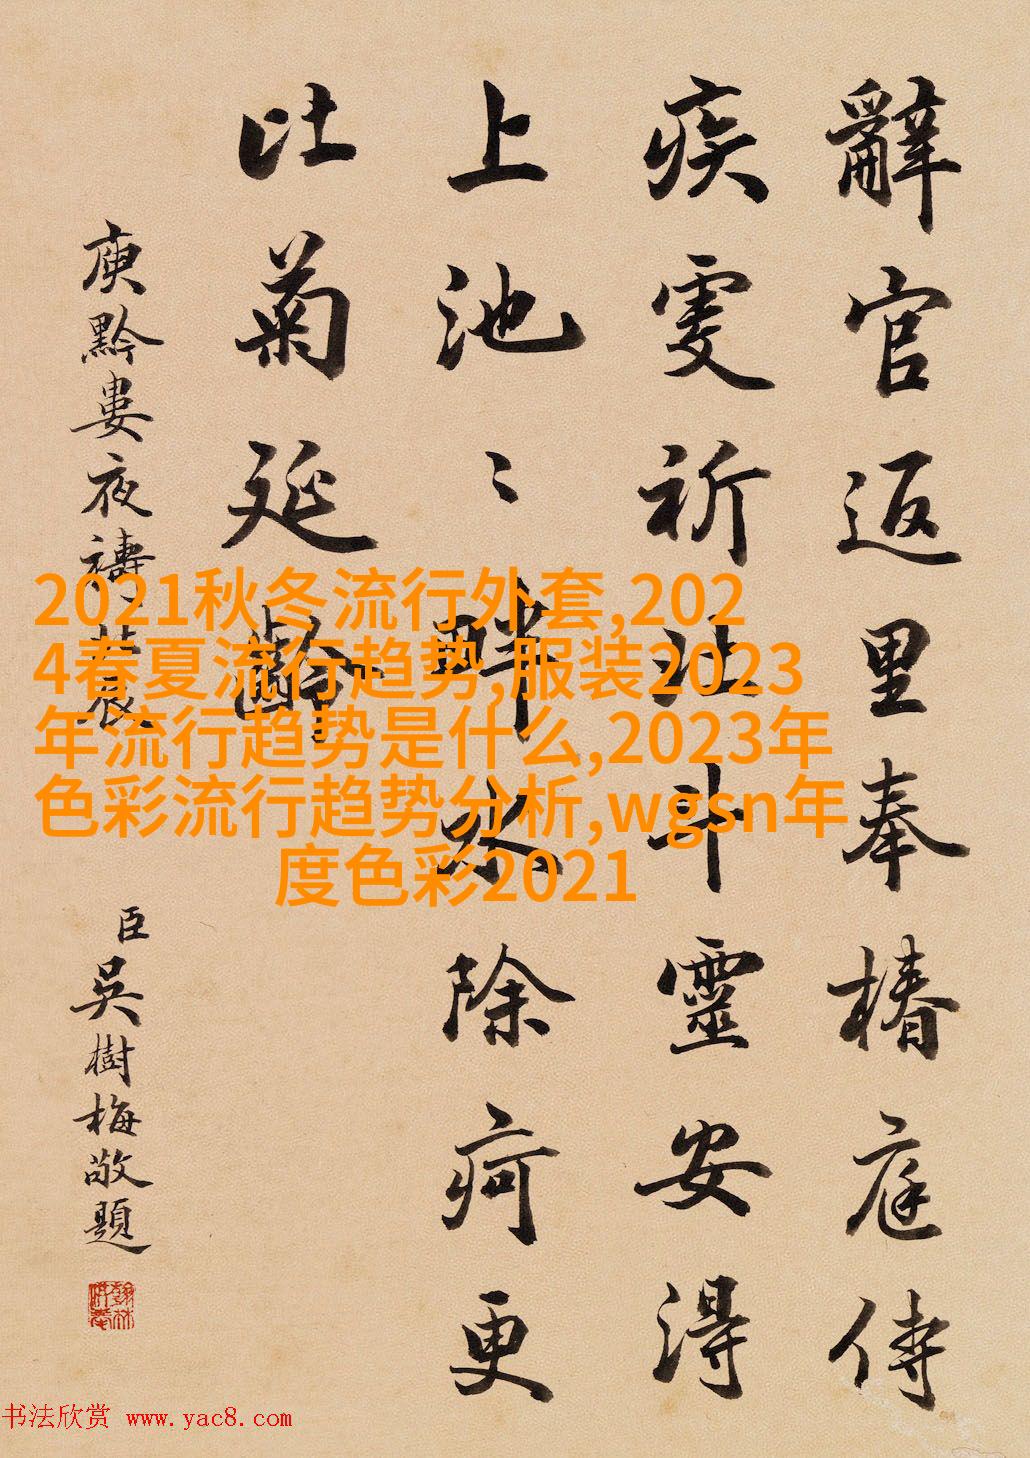 辭官返里奉椿庭侍
疾虔祈北斗靈安得
上池〻畔水除疴更
比菊延齡
庾黔婁夜禱北辰
臣吳樹梅敬題
2021秋冬流行外套,202
4春夏流行趋势,服装2023
年流行趋势是什么,2023年
色彩流行趋势分析,wgsn年
度色彩2021
书法欣赏 www.yac8.com